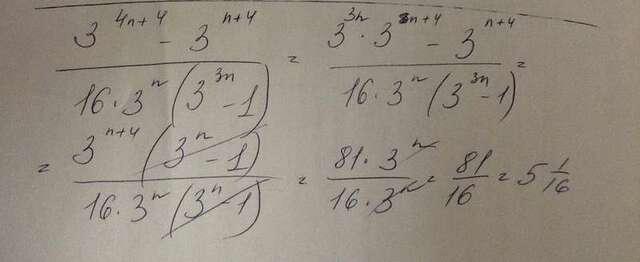 (3^{4n+4} - 3^{n+4}) / (16 · 3^n (3^{3n} - 1)) = (3^{3n} · 3^{n+4} - 3^{n+4}) / (16 · 3^n (3^{3n} - 1)) =
= (3^{n+4} (3^n - 1)) / (16 · 3^n (3^n - 1)) = (81 · 3^n) / (16 · 3^n) = 81/16 = 5 1/16